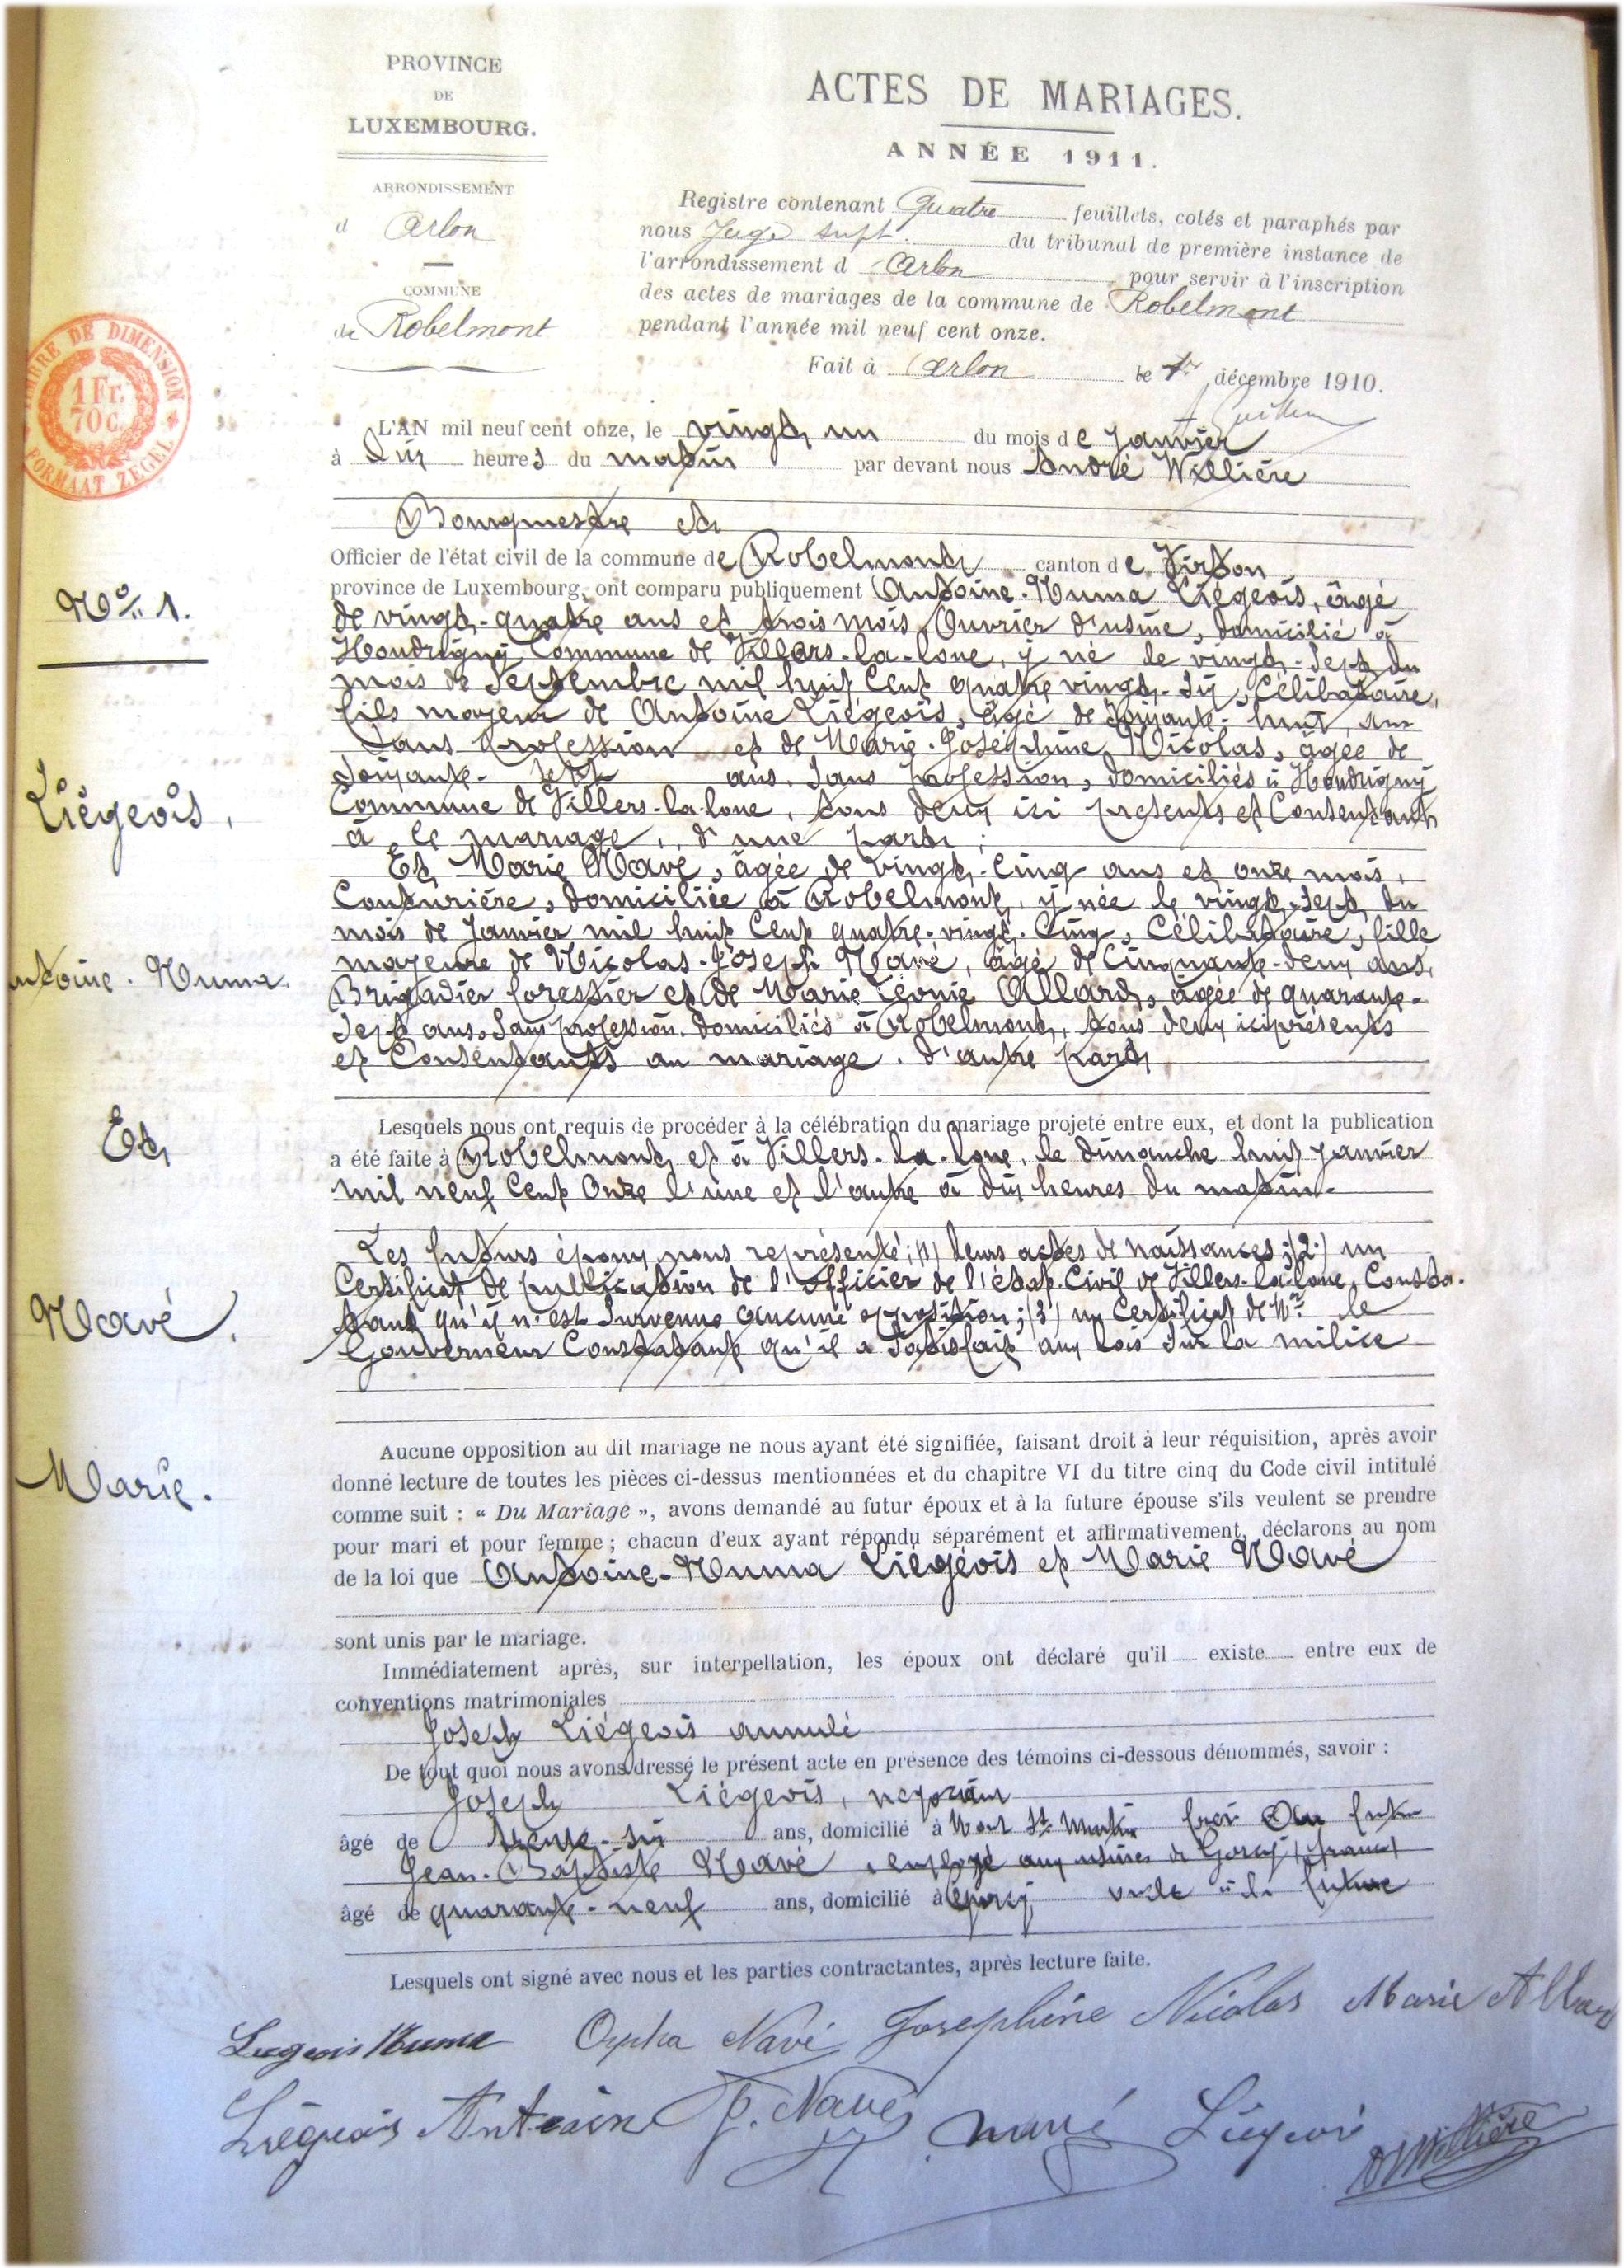 PROVINCE
DE
LUXEMBOURG.
ARRONDISSEMENT
d Arlon
COMMUNE
de Robelmont
ACTES DE MARIAGES.
ANNÉE 1911.
Registre contenant Quatre feuillets, cotés et paraphés par
nous Juge supt. du tribunal de première instance de
l'arrondissement d Arlon pour servir à l'inscription
des actes de mariages de la commune de Robelmont
pendant l'année mil neuf cent onze.
Fait à Arlon le 1er décembre 1910.
TIMBRE DE DIMENSION
1 Fr.
70 C.
FORMAAT ZEGEL
L'AN mil neuf cent onze, le vingt un du mois de Janvier
à Dix heures du matin par devant nous André Willière
Bourgmestre et
Officier de l'état civil de la commune de Robelmont canton de Virton
province de Luxembourg, ont comparu publiquement Antoine-Numa Liégeois, âgé
de vingt-quatre ans et trois mois, Ouvrier d'usine, domicilié à
Houdrigny Commune de Villers-la-loue, y né le vingt-sept du
mois de Septembre mil huit Cent quatre vingt-six, Célibataire,
fils majeur de Antoine Liégeois, âgé de soixante-huit, ans
sans profession et de Marie-Joséphine Nicolas, âgée de
soixante-sept ans, sans profession, domiciliés à Houdrigny
Commune de Villers-la-loue, tous deux ici présents et Consentant
à ce mariage, d'une part;
Et Marie Navé, âgée de vingt-cinq ans et onze mois,
Couturière, domiciliée à Robelmont, y née le vingt-sept du
mois de Janvier mil huit Cent quatre-vingt-Cinq, Célibataire, fille
majeure de Nicolas-Joseph Navé, âgé de Cinquante-deux ans,
Brigadier forestier et de Marie Léonie Allard, âgée de quarante-
sept ans, sans profession, domiciliés à Robelmont, tous deux ici présents
et Consentants au mariage, d'autre part
Lesquels nous ont requis de procéder à la célébration du mariage projeté entre eux, et dont la publication
a été faite à Robelmont et à Villers-la-loue, le dimanche huit janvier
mil neuf Cent Onze l'une et l'autre à dix heures du matin.
Les futurs époux nous représenté; 1) leurs actes de naissances; 2) un
Certificat de publication de l'officier de l'état-Civil de Villers-la-loue, Consta-
tant qu'il n'est survenue aucune opposition; 3) un Certificat de Mr le
Gouverneur Constatant qu'il a satisfait aux lois sur la milice
Aucune opposition au dit mariage ne nous ayant été signifiée, faisant droit à leur réquisition, après avoir
donné lecture de toutes les pièces ci-dessus mentionnées et du chapitre VI du titre cinq du Code civil intitulé
comme suit : « Du Mariage », avons demandé au futur époux et à la future épouse s'ils veulent se prendre
pour mari et pour femme ; chacun d'eux ayant répondu séparément et affirmativement, déclarons au nom
de la loi que Antoine-Numa Liégeois et Marie Navé
sont unis par le mariage.
Immédiatement après, sur interpellation, les époux ont déclaré qu'il existe entre eux de
conventions matrimoniales
Joseph Liégeois annulé
De tout quoi nous avons dressé le présent acte en présence des témoins ci-dessous dénommés, savoir :
Joseph Liégeois,
âgé de trente-six ans, domicilié à Mont St. Martin
Jean-Baptiste Navé employé aux usines de Gorcy (france)
âgé de quarante-neuf ans, domicilié à Gorcy oncle à la future
Lesquels ont signé avec nous et les parties contractantes, après lecture faite.
Liegeois Numa Orpha Navé Joséphine Nicolas Marie Allard
Liégeois Antoine Navé Navé Liégeois AWillière
No 1.
Liégeois,
Antoine-Numa.
Et
Navé,
Marie.